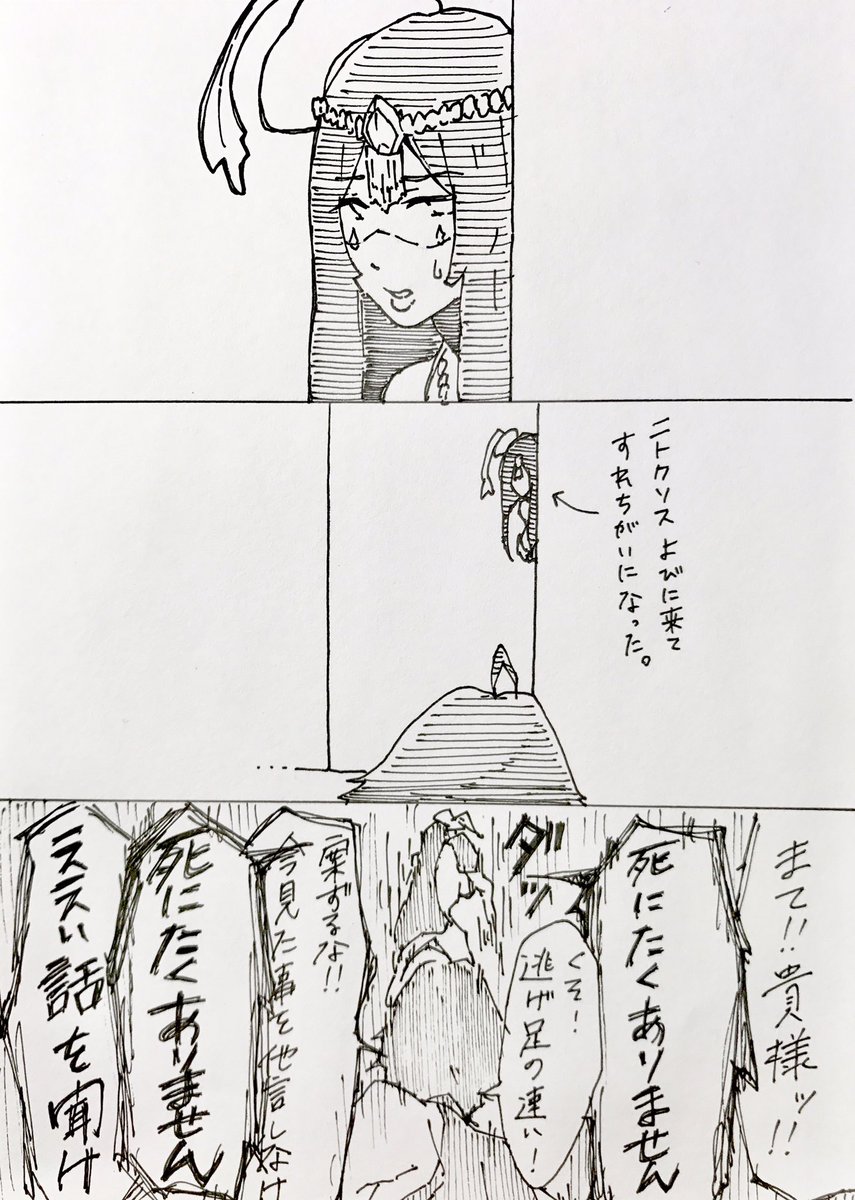 ニトクリス よびに来て
すれちがいになった。
まて!!貴様ッ!!
死にたくありません
ダッ
くそ!
逃げ足の速い!
案ずるな!!
今見た事を他言しなけ
死にたくありません
ええい話を聞け